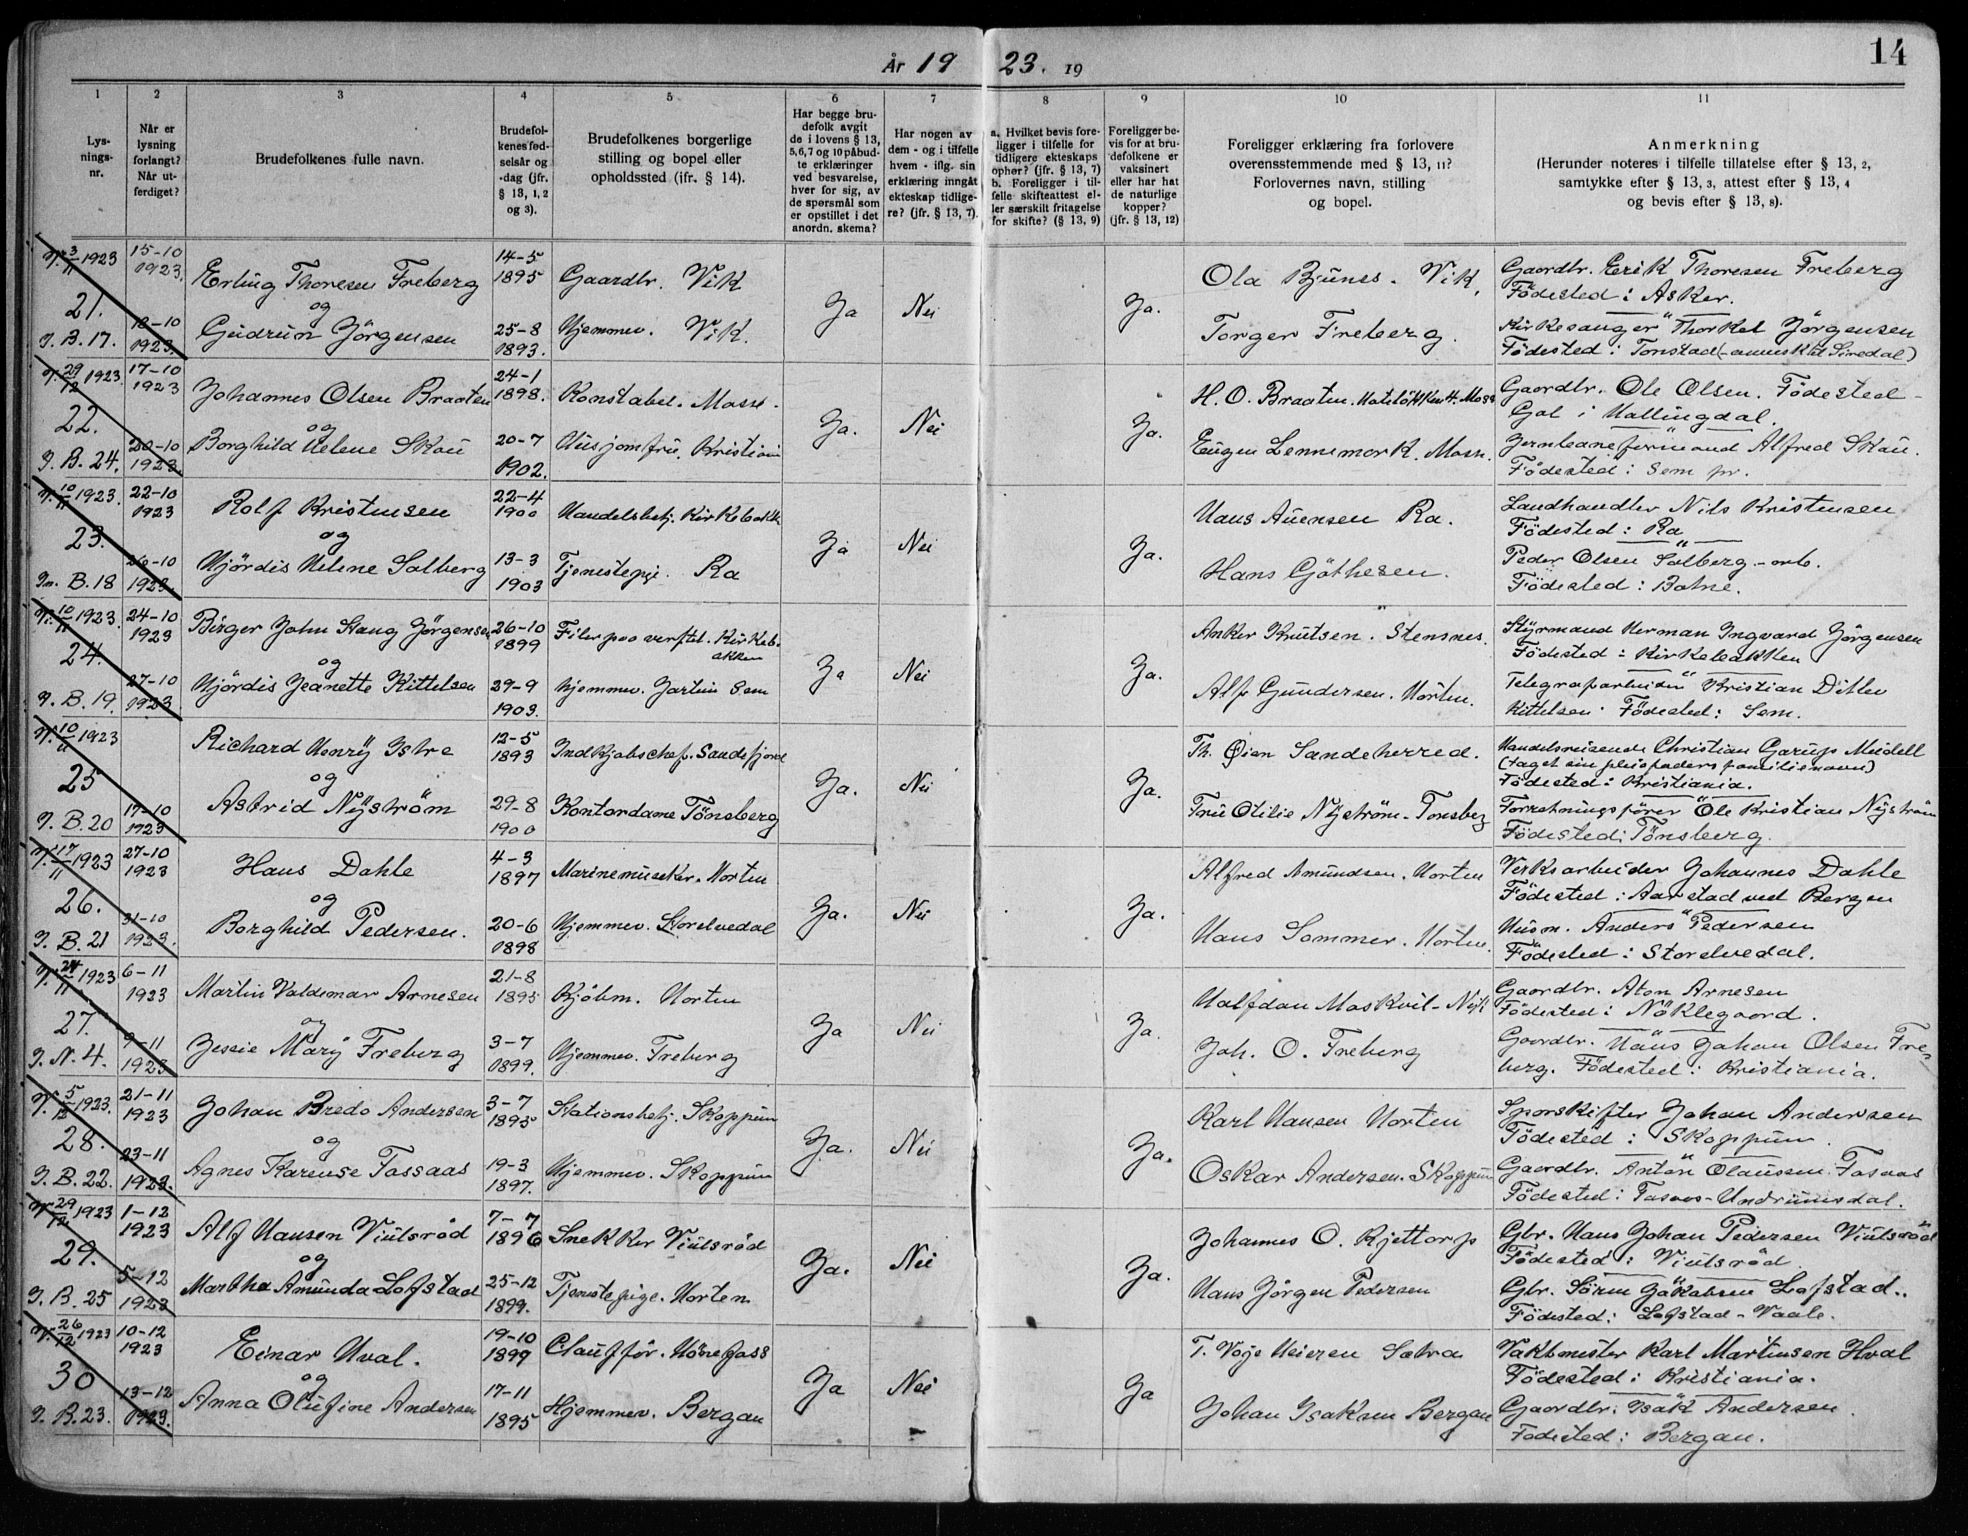 År 19 23. 19
14
1
2
3
4
5
6
7
8
9
10
11
Lys-
nings-
nr.
Når er
lysning
forlangt?
Når ut-
ferdiget?
Brudefolkenes fulle navn.
Brudefol-
kenes fød-
selsår og
-dag (jfr.
§ 13, 1, 2
og 3).
Brudefolkenes borgerlige
stilling og bopel eller
opholdssted (ifr. § 14).
Har begge bru-
defolk avgit
de i lovens § 13,
5, 6, 7 og 10 påbud-
te erklæringer
ved besvarelse,
hver for sig, av
de spørsmål som
er opstillet i det
anordn. skema?
Har nogen av
dem - og i tilfelle
hvem - iflg. sin
erklæring inngåt
ekteskap tidlige-
re? (jfr. § 13, 7).
a. Hvilket bevis fore-
ligger i tilfelle for
tidligere ekteskaps
ophør? (jfr. § 13, 7)
b. Foreligger i til-
felle skifteattest el-
ler særskilt fritagelse
for skifte? (§ 13, 9)
Foreligger be-
vis for at bru-
defolkene er
vaksinert
eller har hat
de naturlige
kopper?
(jfr. § 13, 12)
Foreligger erklæring fra forlovere
overensstemmende med § 13, 11?
Forlovernes navn, stilling
og bopel.
Anmerkning
(Herunder noteres i tilfelle tillatelse efter § 13, 2,
samtykke efter § 13, 3, attest efter § 13, 4
og bevis efter § 13, 8).
V. 3/11 1923
21.
J. B. 17.
15-10
1923.
18-10
1923.
Erling Thoresen Freberg
og
Gudrun Jörgensen
14-5
1895
25-8
1893.
Gaardbr. Vik
Hjemmev. Vik.
Ja
Nei
Ja.
Ola Bjunes. Vik.
Torger Freberg.
Gaardbr. Erik Thoresen Freberg
Födested: Asker.
Kirkesanger Thorkel Jörgensen
Födested: Tonstad (-anneks til Siredal)
V. 29/12 1923.
22.
J. B. 24.
17-10
1923
20-10
1923.
Johannes Olsen Braaten
og
Borghild Helene Skau
24-1
1898.
20-7
1902.
Konstabel. Moss.
Husjomfru. Kristiania
Ja.
Nei
Ja.
H. O. Braaten. Moss
Eugen Lennemork. Moss.
Gaardbr. Ole Olsen. Födested -
Gol i Hallingdal.
Jernbaneformand Alfred Skau.
Födested: Sem pr.
V. 10/11 1923.
23.
B. 18
22-10
1923
26-10
1923
Rolf Kristensen
og
Hjördis Helene Solberg
22-4
1900
13-3
1903
Handelsbetj. Kirkebakk
Tjenestepige. Ra
Ja
Nei
Ja.
Hans Auensen Ra.
Hans Göthesen.
Landhandler Nils Kristensen
Födested: Ra
Peder Olsen Solberg - arb.
Födested: Botne.
V. 10/11 1923.
24.
J. B. 19.
24-10
1923
27-10
1923
Birger John Stang Jörgensen
og
Hjördis Jeanette Kittelsen
26-10
1899
29-9
1903.
Filer paa verftet. Kirkeb.
akken
Hjemmev. Jarlein Sem
Ja
Nei
Ja.
Anker Knutsen. Stensnes.
Alf Gundersen. Horten.
Styrmand Herman Ingvard Jörgensen
Födested: Kirkebakken
Telegrafarbeider Kristian Ditlev
Kittelsen. Födested: Sem.
V. 10/11 1923
25
J. B. 20
17-10
1923
Richard Henry Istre
og
Astrid Nyström
12-5
1893
29-8
1900
Indkjöbschef. Sandefjord
Kontordame Tönsberg
Ja.
Nei
Ja.
Th. Öien Sandeherred.
Fru Otilie Nyström - Tonsberg
Handelsreisende Christian Garup Meidell
(taget sin pleiefaders familienavn)
Födested: Kristiania.
Forretningsförer Ole Kristian Nyström
Födested: Tönsberg.
V. 17/11 1923
26.
J. B. 21
27-10
1923
31-10
1923.
Hans Dahle
og
Borghild Pedersen.
4-3
1897
20-6
1898
Marinemusiker. Horten
Hjemmev. Storelvedal
Ja.
Nei
Ja.
Alfred Amundsen. Horten
Hans Sommer. Horten.
Verksarbeider Johannes Dahle
Födested: Aarstad ved Bergen
Husm. Anders Pedersen
Födested: Storelvedal.
V. 24/11 1923
27.
J. N. 4.
6-11
1923
9-11
1923
Martin Valdemar Arnesen
og
Jessie Mary Freberg
21-8
1895
3-7
1899.
Kjöbm. Horten
Hjemmev. Freberg
Ja
Nei
Ja.
Halfdan Moskvil - Nykl
Joh. O. Freberg
Gaardbr. Aton Arnesen
Födested: Nöklegaard.
Gaardbr. Hans Johan Olsen Fre-
berg. Födested: Kristiania.
V. 5/12 1923.
28.
J. B. 22.
21-11
1923
23-11
1923.
Johan Bredo Andersen
og
Agnes Karense Fossaas
3-7
1895
19-3
1897.
Stationsbetj. Skoppum
Hjemmev. Skoppum
Ja.
Nei
Ja.
Karl Hansen Horten
Oskar Andersen. Skoppum
Sporskifter Johan Andersen
Födested: Skoppum.
Gaardbr. Anton Olaussen Fosaas
Födested: Fosaas - Undrumsdal.
V. 29/12 1923
29.
J. B. 25
1-12
1923
5-12
1923
Alf Hansen Viulsröd
og
Martha Amunda Lofstad
7-7
1896
25-12
1899.
Snekker Viulsröd
Tjenestepige. Horten
Ja.
Nei
Ja.
Johannes O. Kjettorp
Hans Jörgen Pedersen
Gbr. Hans Johan Pedersen Viulsröd
Födested: Viulsröd
Gbr. Sören Jakobsen Lofstad.
Födested: Lofstad - Vaale.
V. 26/12 1923
30
J. B. 23.
10-12
1923
13-12
1923.
Einar Hval.
og
Anna Olufine Andersen
19-10
1899
17-11
1895
Chaufför. Hönefoss
Hjemmev. Bergan
Ja
Nei
Ja
T. Voje Heieren Sætra
Johan Isaksen Bergan
Vaktmester Karl Martinsen Hval
Födested: Kristiania.
Gaardbr. Isak Andersen.
Födested: Bergan.